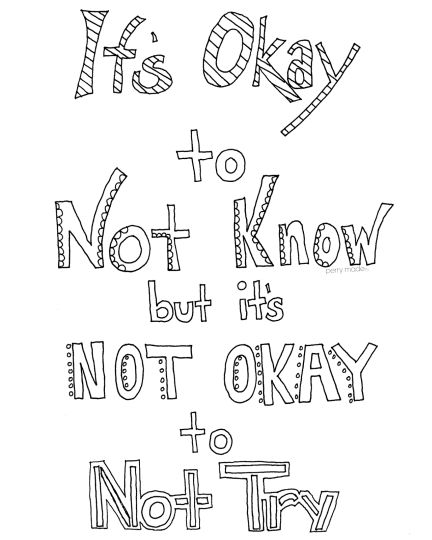 It's Okay
to
Not Know
perry made
but it's
NOT OKAY
to
Not Try